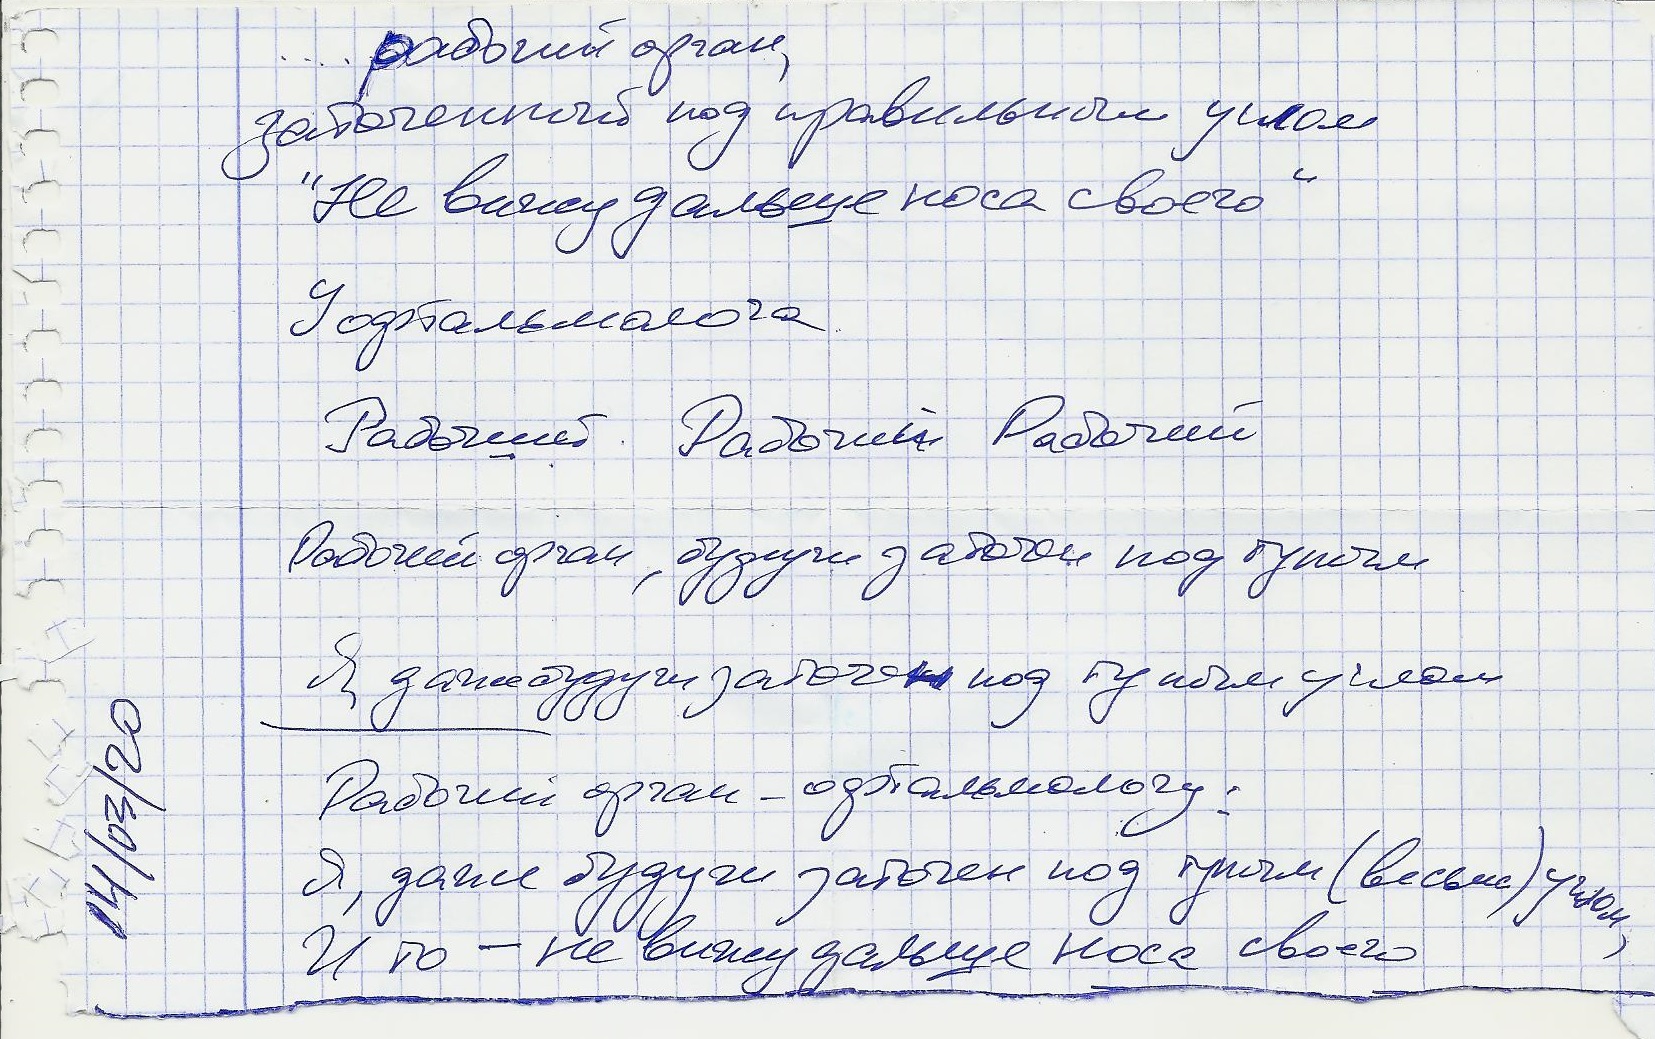 .... рабочий орган,
заточенный под правильным углом
"Не вижу дальше носа своего"
У офтальмолога
Рабочий. Рабочий Рабочий
Рабочий орган, будучи заточен под тупым
Я, даже будучи заточен под тупым углом
Рабочий орган - офтальмологу:
Я, даже будучи заточен под тупым (весьма) углом,
И то - не вижу дальше носа своего
14/03/20